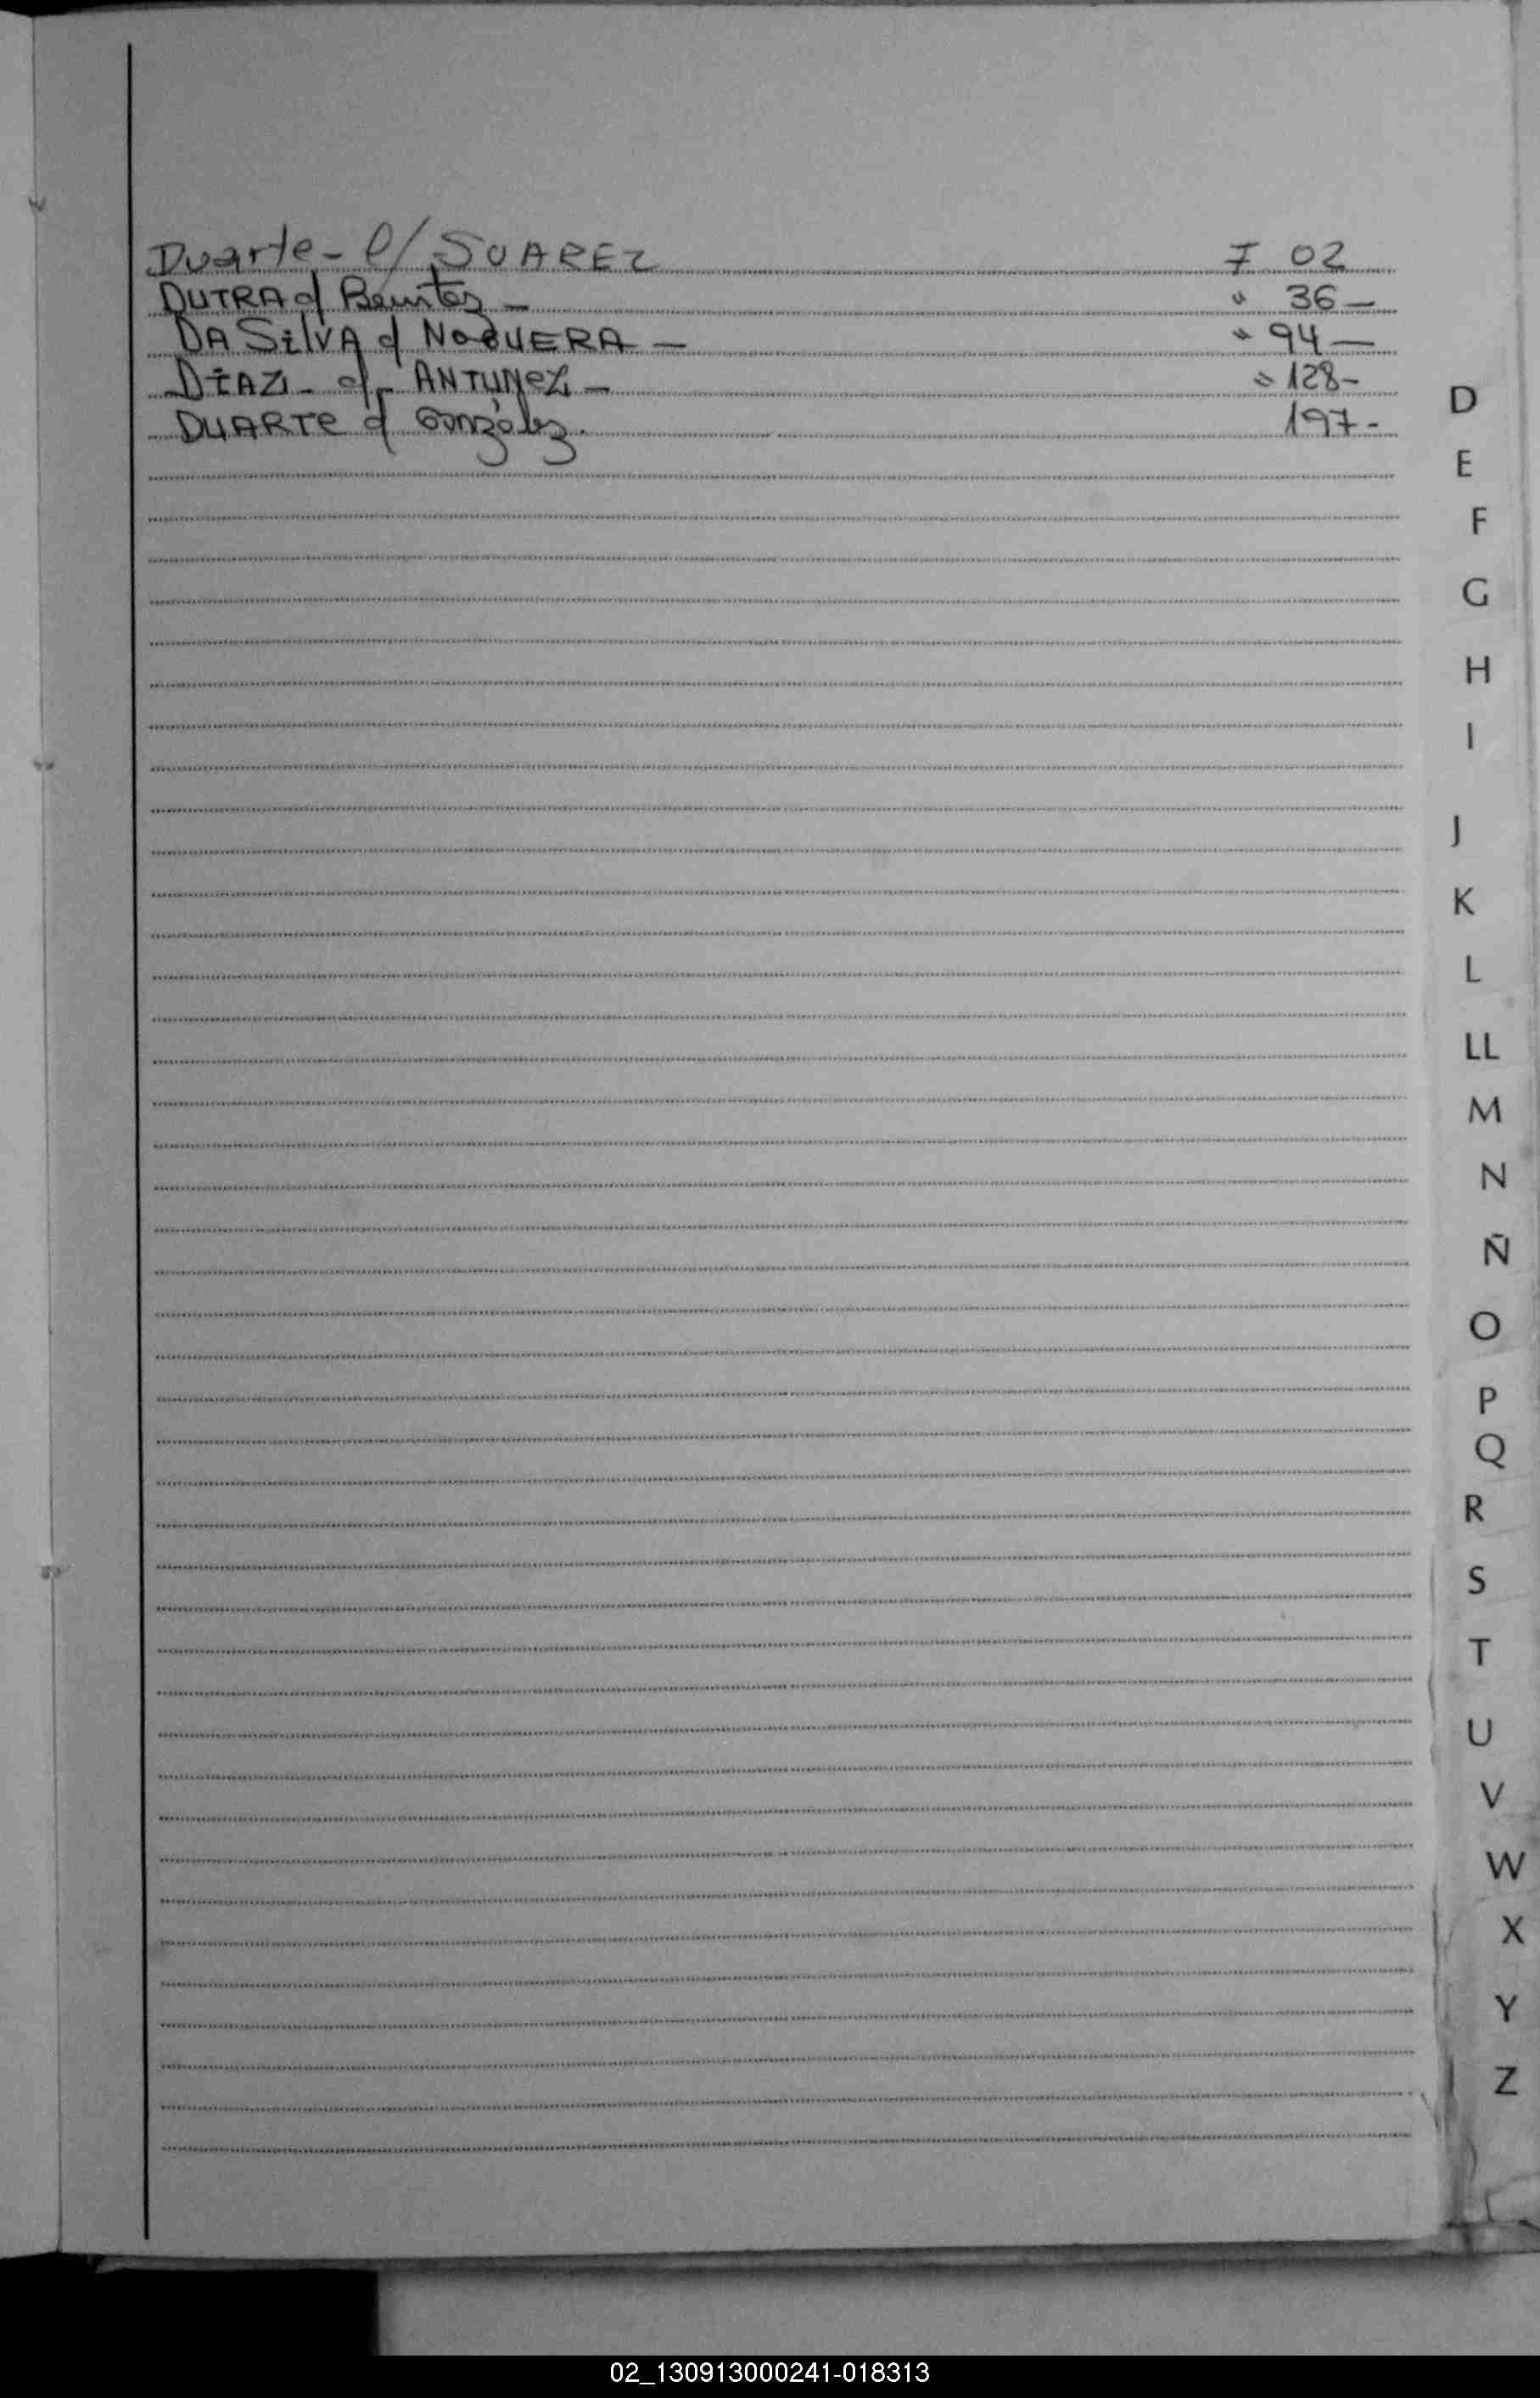 Duarte - c/ SUAREZ F 02
DUTRA c/ Benitez - " 36 -
DA SilVA c/ NOGUERA - " 94 -
DÍAZ - c/ - ANTUNeZ - " 128 -
DUARTe c/ González. 197 -
D
E
F
G
H
I
J
K
L
LL
M
N
Ñ
O
P
Q
R
S
T
U
V
W
X
Y
Z
02_130913000241-018313